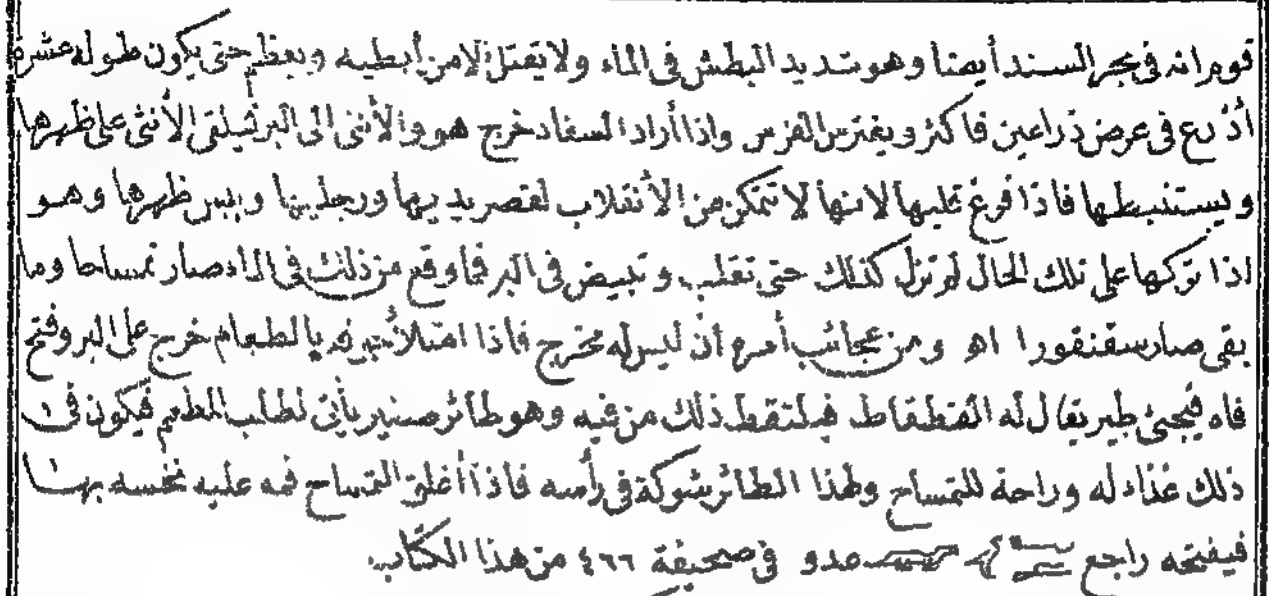 قوم انه فى بحر السند أيضا وهو شديد البطش فى الماء ولا يقتل إلا من أبطيه ويعظم حتى يكون طوله عشرة
أذرع فى عرض ذراعين فاكثر ويفترس الفرس واذا أراد السفاد خرج هو والأنثى الى البر فيلقى الأنثى على ظهرها
ويستنبطها فاذا فرغ قلبها لانها لا تتمكن من الأنقلاب لقصر يديها ورجليها ويبس ظهرها وهو
اذا تركها على تلك الحال لم تزل كذلك حتى تقلب وتبيض فى البر فما وقع من ذلك فى الماء صار تمساحا وما
بقى صار سقنقورا اهـ ومن عجائب أمره أن ليس له مخرج فاذا امتلأ جوفه بالطعام خرج على البر وفتح
فاه فيجئ طير يقال له القطقاط فيلتقط ذلك من فيه وهو طائر صغير يأتى لطلب المطعم فيكون فى
ذلك غذاء له وراحة للتمساح ولهذا الطائر شوكة فى رأسه فاذا أغلق التمساح فمه عليه نخسه بها
فيفتحه راجع مدو فى صحيفة ٤٦٦ من هذا الكتاب